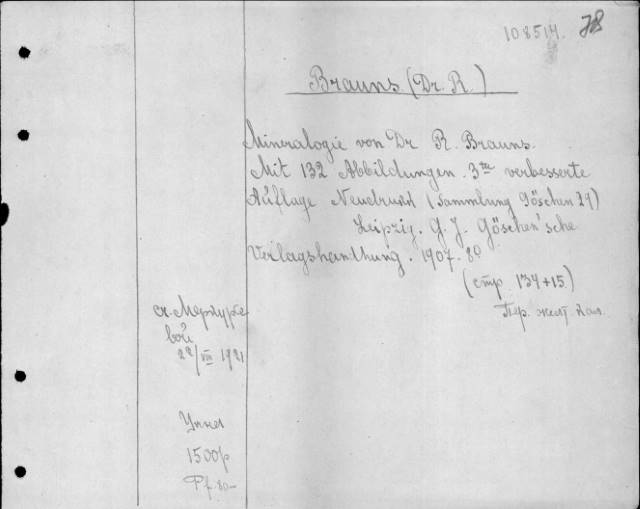 108514. 78
Brauns (Dr. R.)
Mineralogie von Dr R. Brauns.
Mit 132 Abbildungen. 3te verbesserte
Auflage Neudruck (Sammlung Göschen 29)
Leipzig. G. J. Göschen'sche
Verlagshandlung. 1907. 8º
(стр. 134+15)
Пер. желт. кол.
от Меркурье
вой
22/VIII 1921
1500р